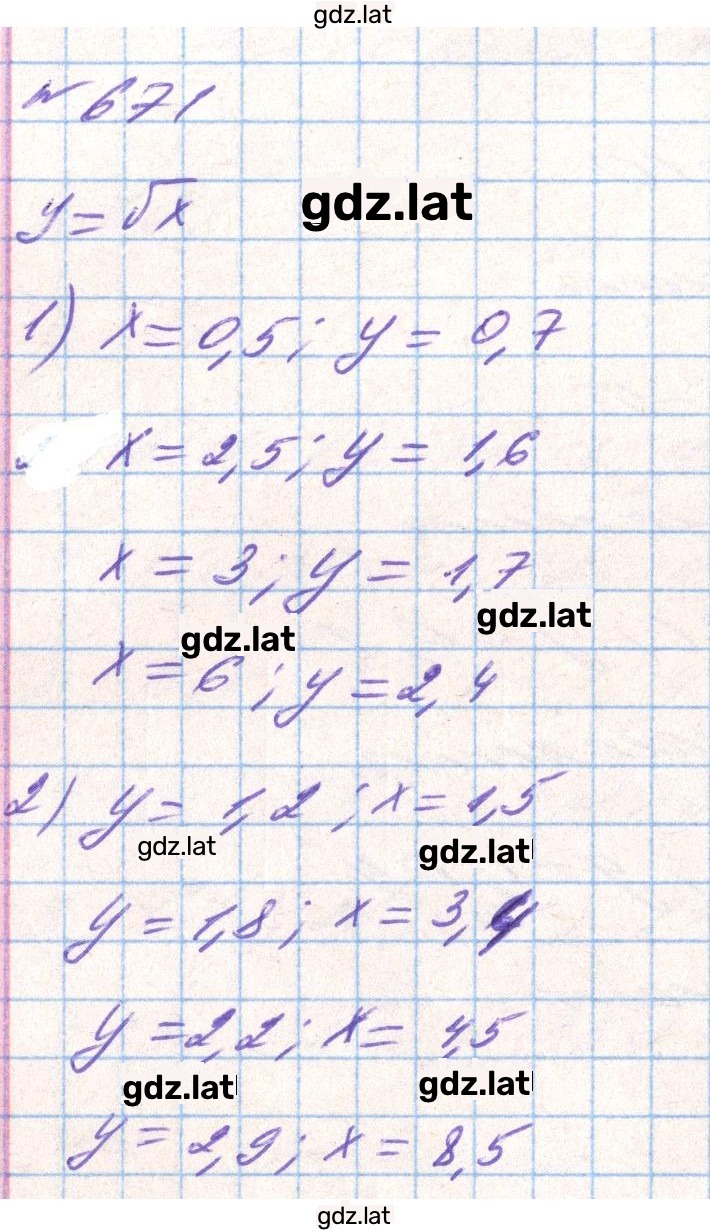 gdz.lat
№ 671
y = √x
gdz.lat
1) x = 0,5; y = 0,7
x = 2,5; y = 1,6
x = 3; y = 1,7
gdz.lat
gdz.lat
x = 6; y = 2,4
2) y = 1,2; x = 1,5
gdz.lat
gdz.lat
y = 1,8; x = 3,4
y = 2,2; x = 4,5
gdz.lat
gdz.lat
y = 2,9; x = 8,5
gdz.lat